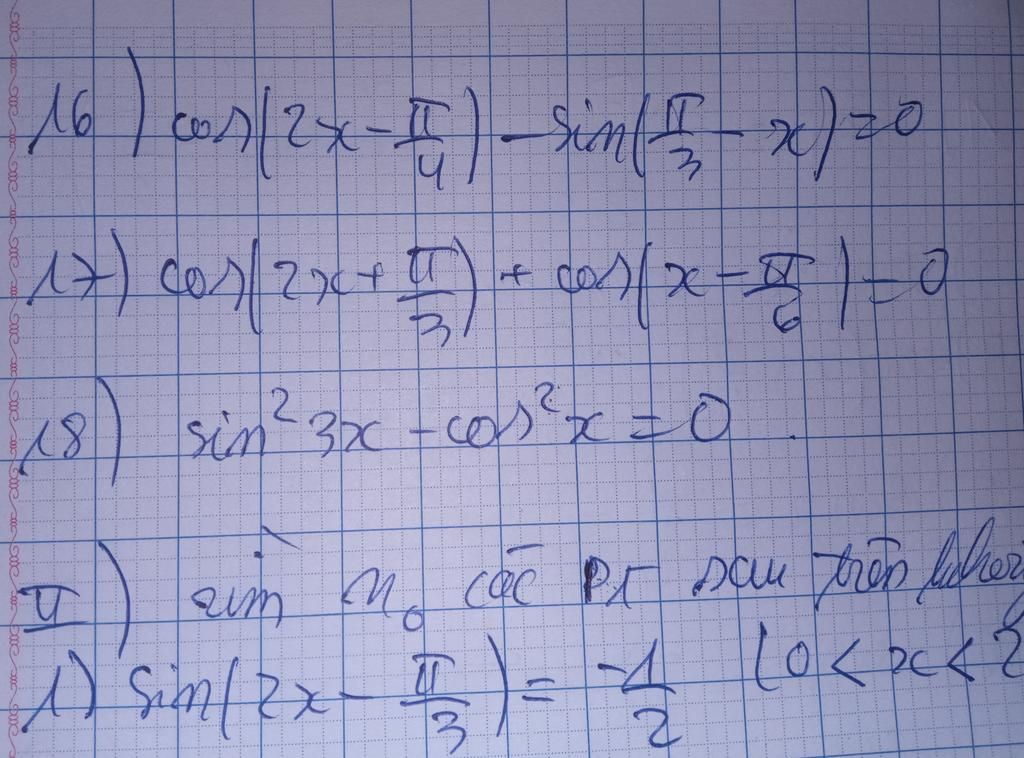 16) cos(2x - π/4) - sin(π/3 - x) = 0
17) cos(2x + π/3) + cos(x - π/6) = 0
18) sin² 3x - cos² x = 0.
II) các PT sau trên
1) sin(2x - π/3) = -1/2 (0 < x < 2